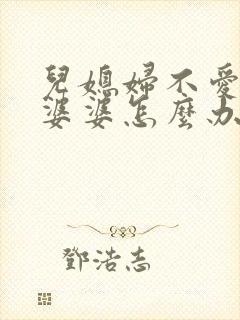 兒媳婦不愛
婆婆怎麼办
鄧浩志